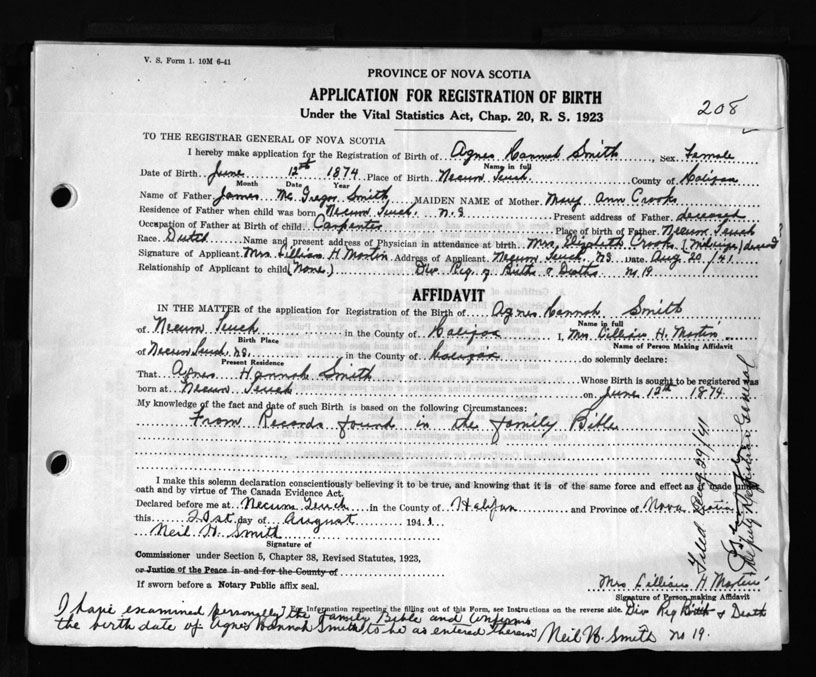 V. S. Form 1. 10M 6-41
PROVINCE OF NOVA SCOTIA
APPLICATION FOR REGISTRATION OF BIRTH
208
Under the Vital Statistics Act, Chap. 20, R. S. 1923
TO THE REGISTRAR GENERAL OF NOVA SCOTIA
I hereby make application for the Registration of Birth of Agnes Hannah Smith, Sex Female
Name in full
Date of Birth June 12th 1874 Place of Birth Necum Teuch County of Halifax
Month Date Year
Name of Father James Mc Gregor Smith MAIDEN NAME of Mother Mary Ann Crooks
Residence of Father when child was born Necum Teuch N.S Present address of Father deceased
Occupation of Father at Birth of child Carpenter Place of birth of Father Necum Teuch
Race Dutch Name and present address of Physician in attendance at birth Mrs Elizabeth Crooks (Midwife) deceased
Signature of Applicant Mrs Lillian H Martin Address of Applicant Necum Teuch, NS Date Aug 20/41
Relationship of Applicant to child (None) Div Reg of Births & Deaths no 19
AFFIDAVIT
IN THE MATTER of the application for Registration of the Birth of Agnes Hannah Smith
Name in full
of Necum Teuch in the County of Halifax I, Mrs Lillian H. Martin
Birth Place Name of Person Making Affidavit
of Necum Teuch NS in the County of Halifax do solemnly declare:
Present Residence
That Agnes Hannah Smith Whose Birth is sought to be registered was
born at Necum Teuch on June 12th 1874
My knowledge of the fact and date of such Birth is based on the following Circumstances:
From Records found in the family Bible
I make this solemn declaration conscientiously believing it to be true, and knowing that it is of the same force and effect as if made under
oath and by virtue of The Canada Evidence Act.
Declared before me at Necum Teuch in the County of Halifax and Province of Nova Scotia
this 21st day of August 1941
Neil W. Smith
Signature of
Commissioner under Section 5, Chapter 38, Revised Statutes, 1923,
or Justice of the Peace in and for the County of
If sworn before a Notary Public affix seal.
Mrs Lillian H Martin
Signature of Person making Affidavit
For Information respecting the filling out of this Form, see Instructions on the reverse side.
Div Reg Birth & Death
no 19.
I have examined personally the family Bible and confirm
the birth date of Agnes Hannah Smith to be as entered therein Neil W. Smith
Filed Aug 29/41
Deputy Registrar General